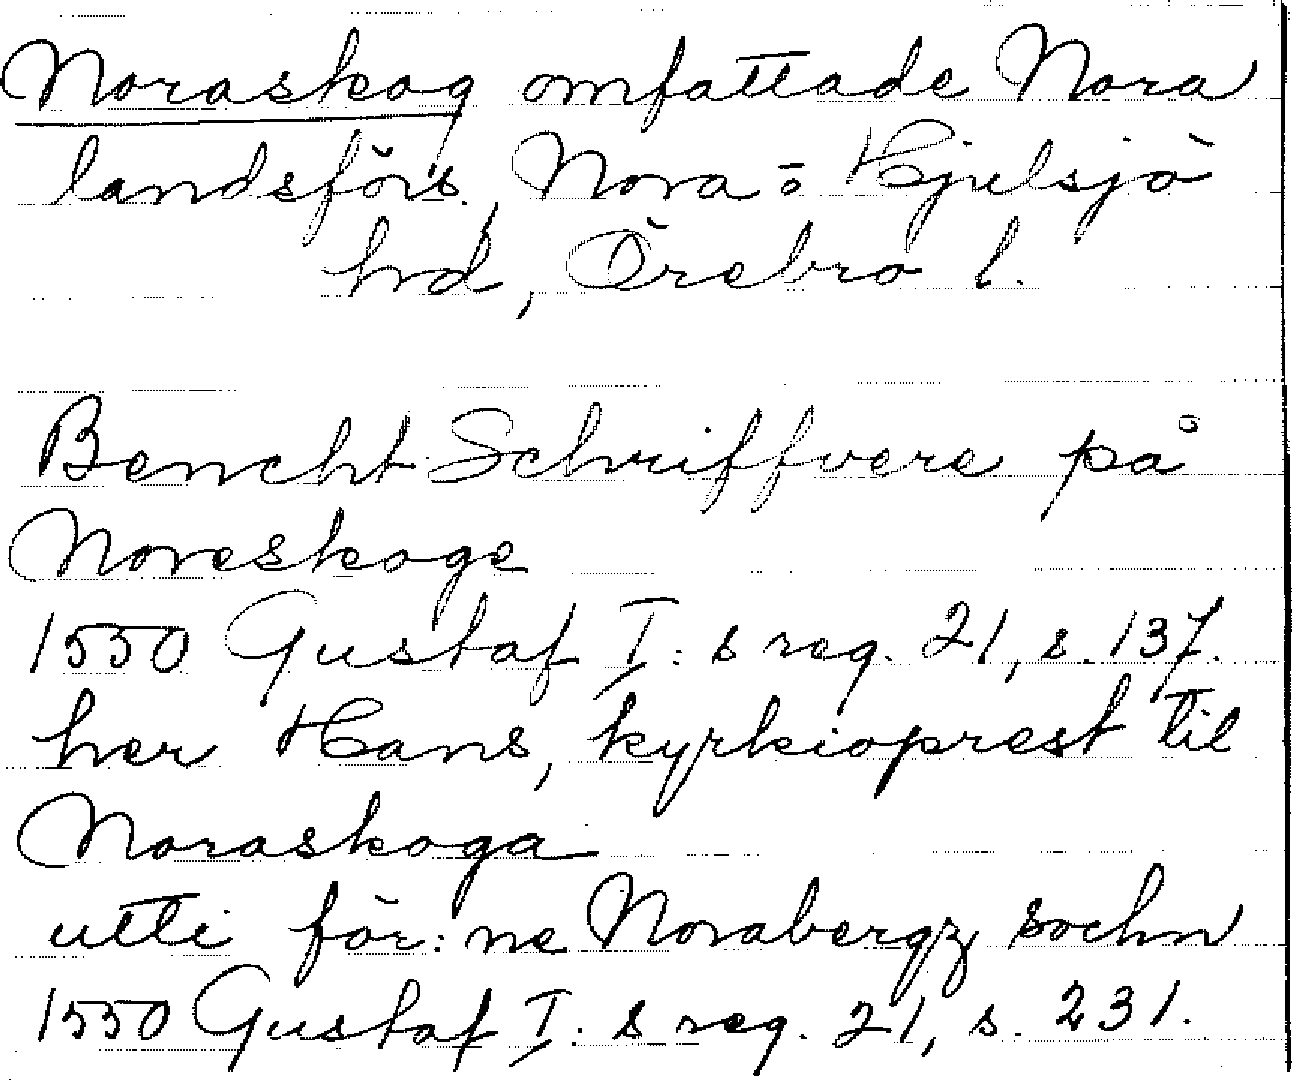 Noraskog omfattade Nora
landsförs., Nora o Hjulsjö
hrd, Örebro l.
Bencht Schriffvere på
Noreskoge
1550 Gustaf I:s reg. 21, s. 137.
her Hans, kyrkioprest til
Noraskoga
utti för:ne Norabergz sochn
1550 Gustaf I:s reg. 21, s. 231.